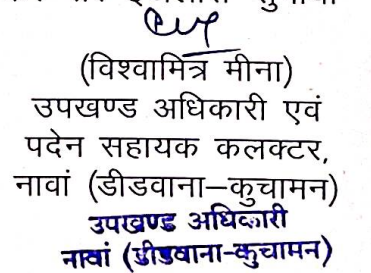 (विश्वामित्र मीना)
उपखण्ड अधिकारी एवं
पदेन सहायक कलक्टर,
नावां (डीडवाना–कुचामन)
उपखण्ड अधिकारी
नावां (डीडवाना-कुचामन)